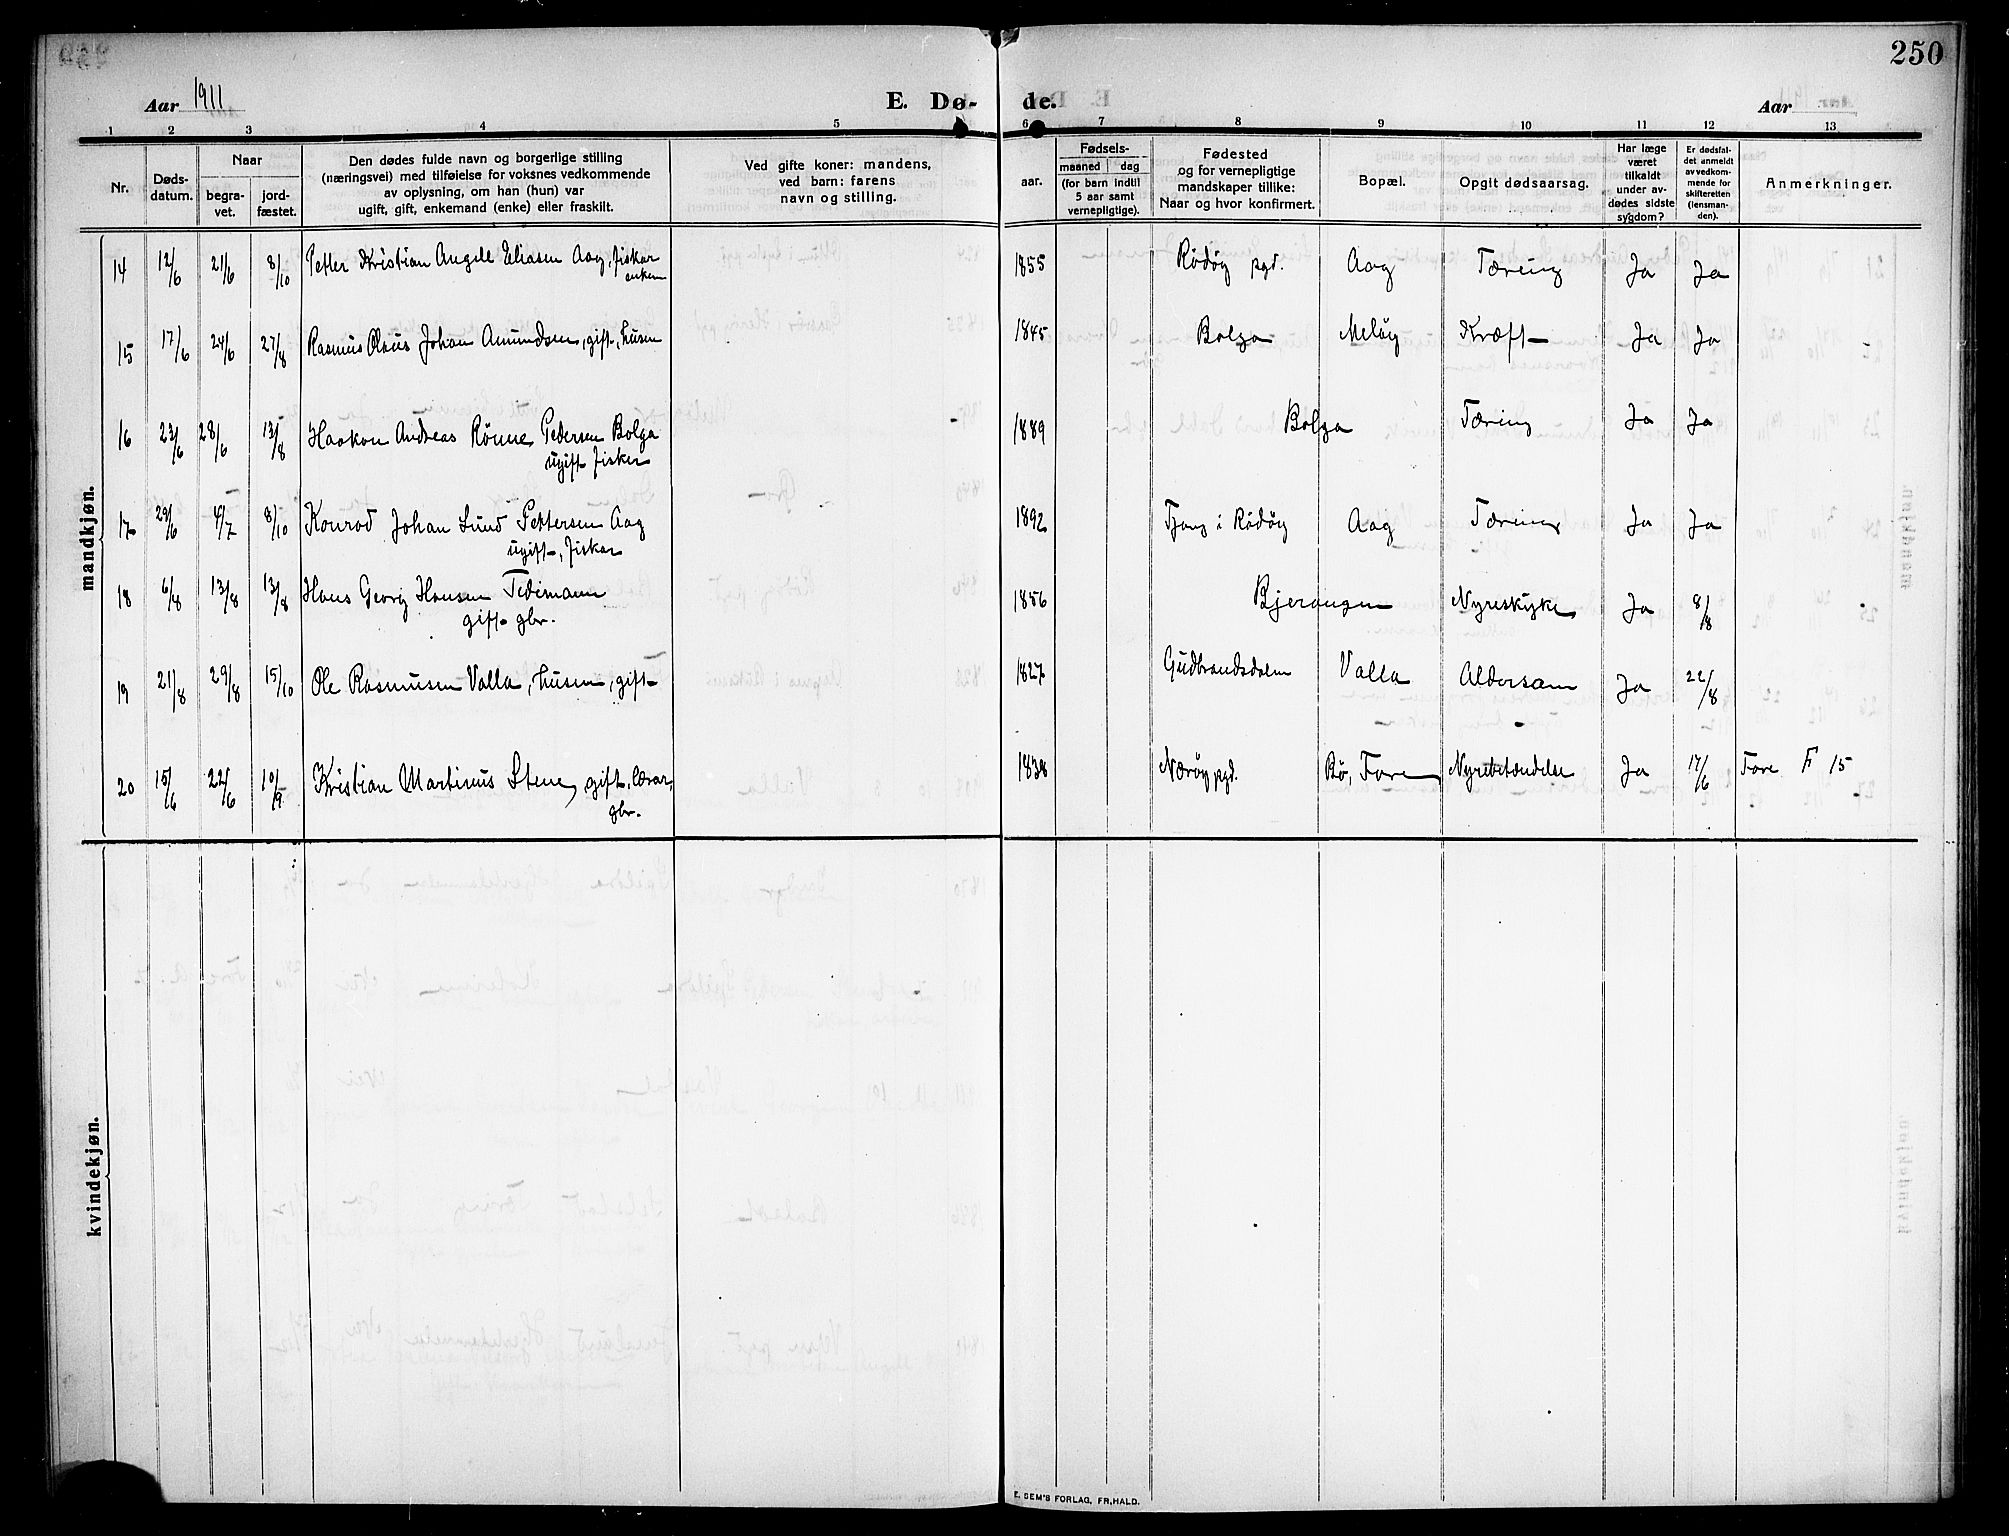 250
Aar 1911
E. Dø- de.
Aar
1 2 3 4 5 6 7 8 9 10 11 12 13
Nr.
Døds-
datum.
Naar
begra-
vet.
jord-
fæstet.
Den dødes fulde navn og borgerlige stilling
(næringsvei) med tilføielse for voksnes vedkommende
av oplysning, om han (hun) var
ugift, gift, enkemand (enke) eller fraskilt.
Ved gifte koner: mandens,
ved barn: farens
navn og stilling.
aar.
Fødsels-
maaned dag
(for barn indtil
5 aar samt
vernepligtige).
Fødested
og for vernepligtige
mandskaper tillike:
Naar og hvor konfirmert.
Bopæl.
Opgit dødsaarsag.
Har læge
været
tilkaldt
under av-
dødes sidste
sygdom?
Er dødsfal-
det anmeldt
av vedkom-
mende for
skifteretten
(lensman-
den).
Anmerkninger.
mandkjøn.
14 12/6 21/6 8/10 Petter Kristian Angell Eliasen Aag, fisker 1855 Rödöy pgd. Aag Tæring Ja Ja
enkem
15 17/6 24/6 27/8 Rasmus Olaus Johan Amundsen, gift, husm 1845 Bolga Melöy Kræft Ja Ja
16 23/6 28/6 13/8 Haakon Andreas Rönne Pedersen Bolga 1889 Bolga Tæring Ja Ja
ugift fisker
17 29/6 4/7 8/10 Konrad Johan Lund Pettersen Aag 1892 Tjong i Rödöy Aag Tæring Ja Ja
ugift, fisker
18 6/8 13/8 13/8 Hans Georg Hansen Tidemann 1856 Bjerangen Nyreskyke Ja 8/8
gift gbr.
19 21/8 29/8 15/10 Ole Rasmusen Valla, husm, gift 1827 Gudbrandsdalen Valla Aldersam Ja 22/8
20 15/6 22/6 10/9 Kristian Martinus Stene, gift, lærar, 1838 Næröy pgd. Bö, Fore Nyrebetændelse Ja 17/6 Fore F 15
gbr.
kvindekjøn.
E. SEM'S FORLAG, FR.HALD.